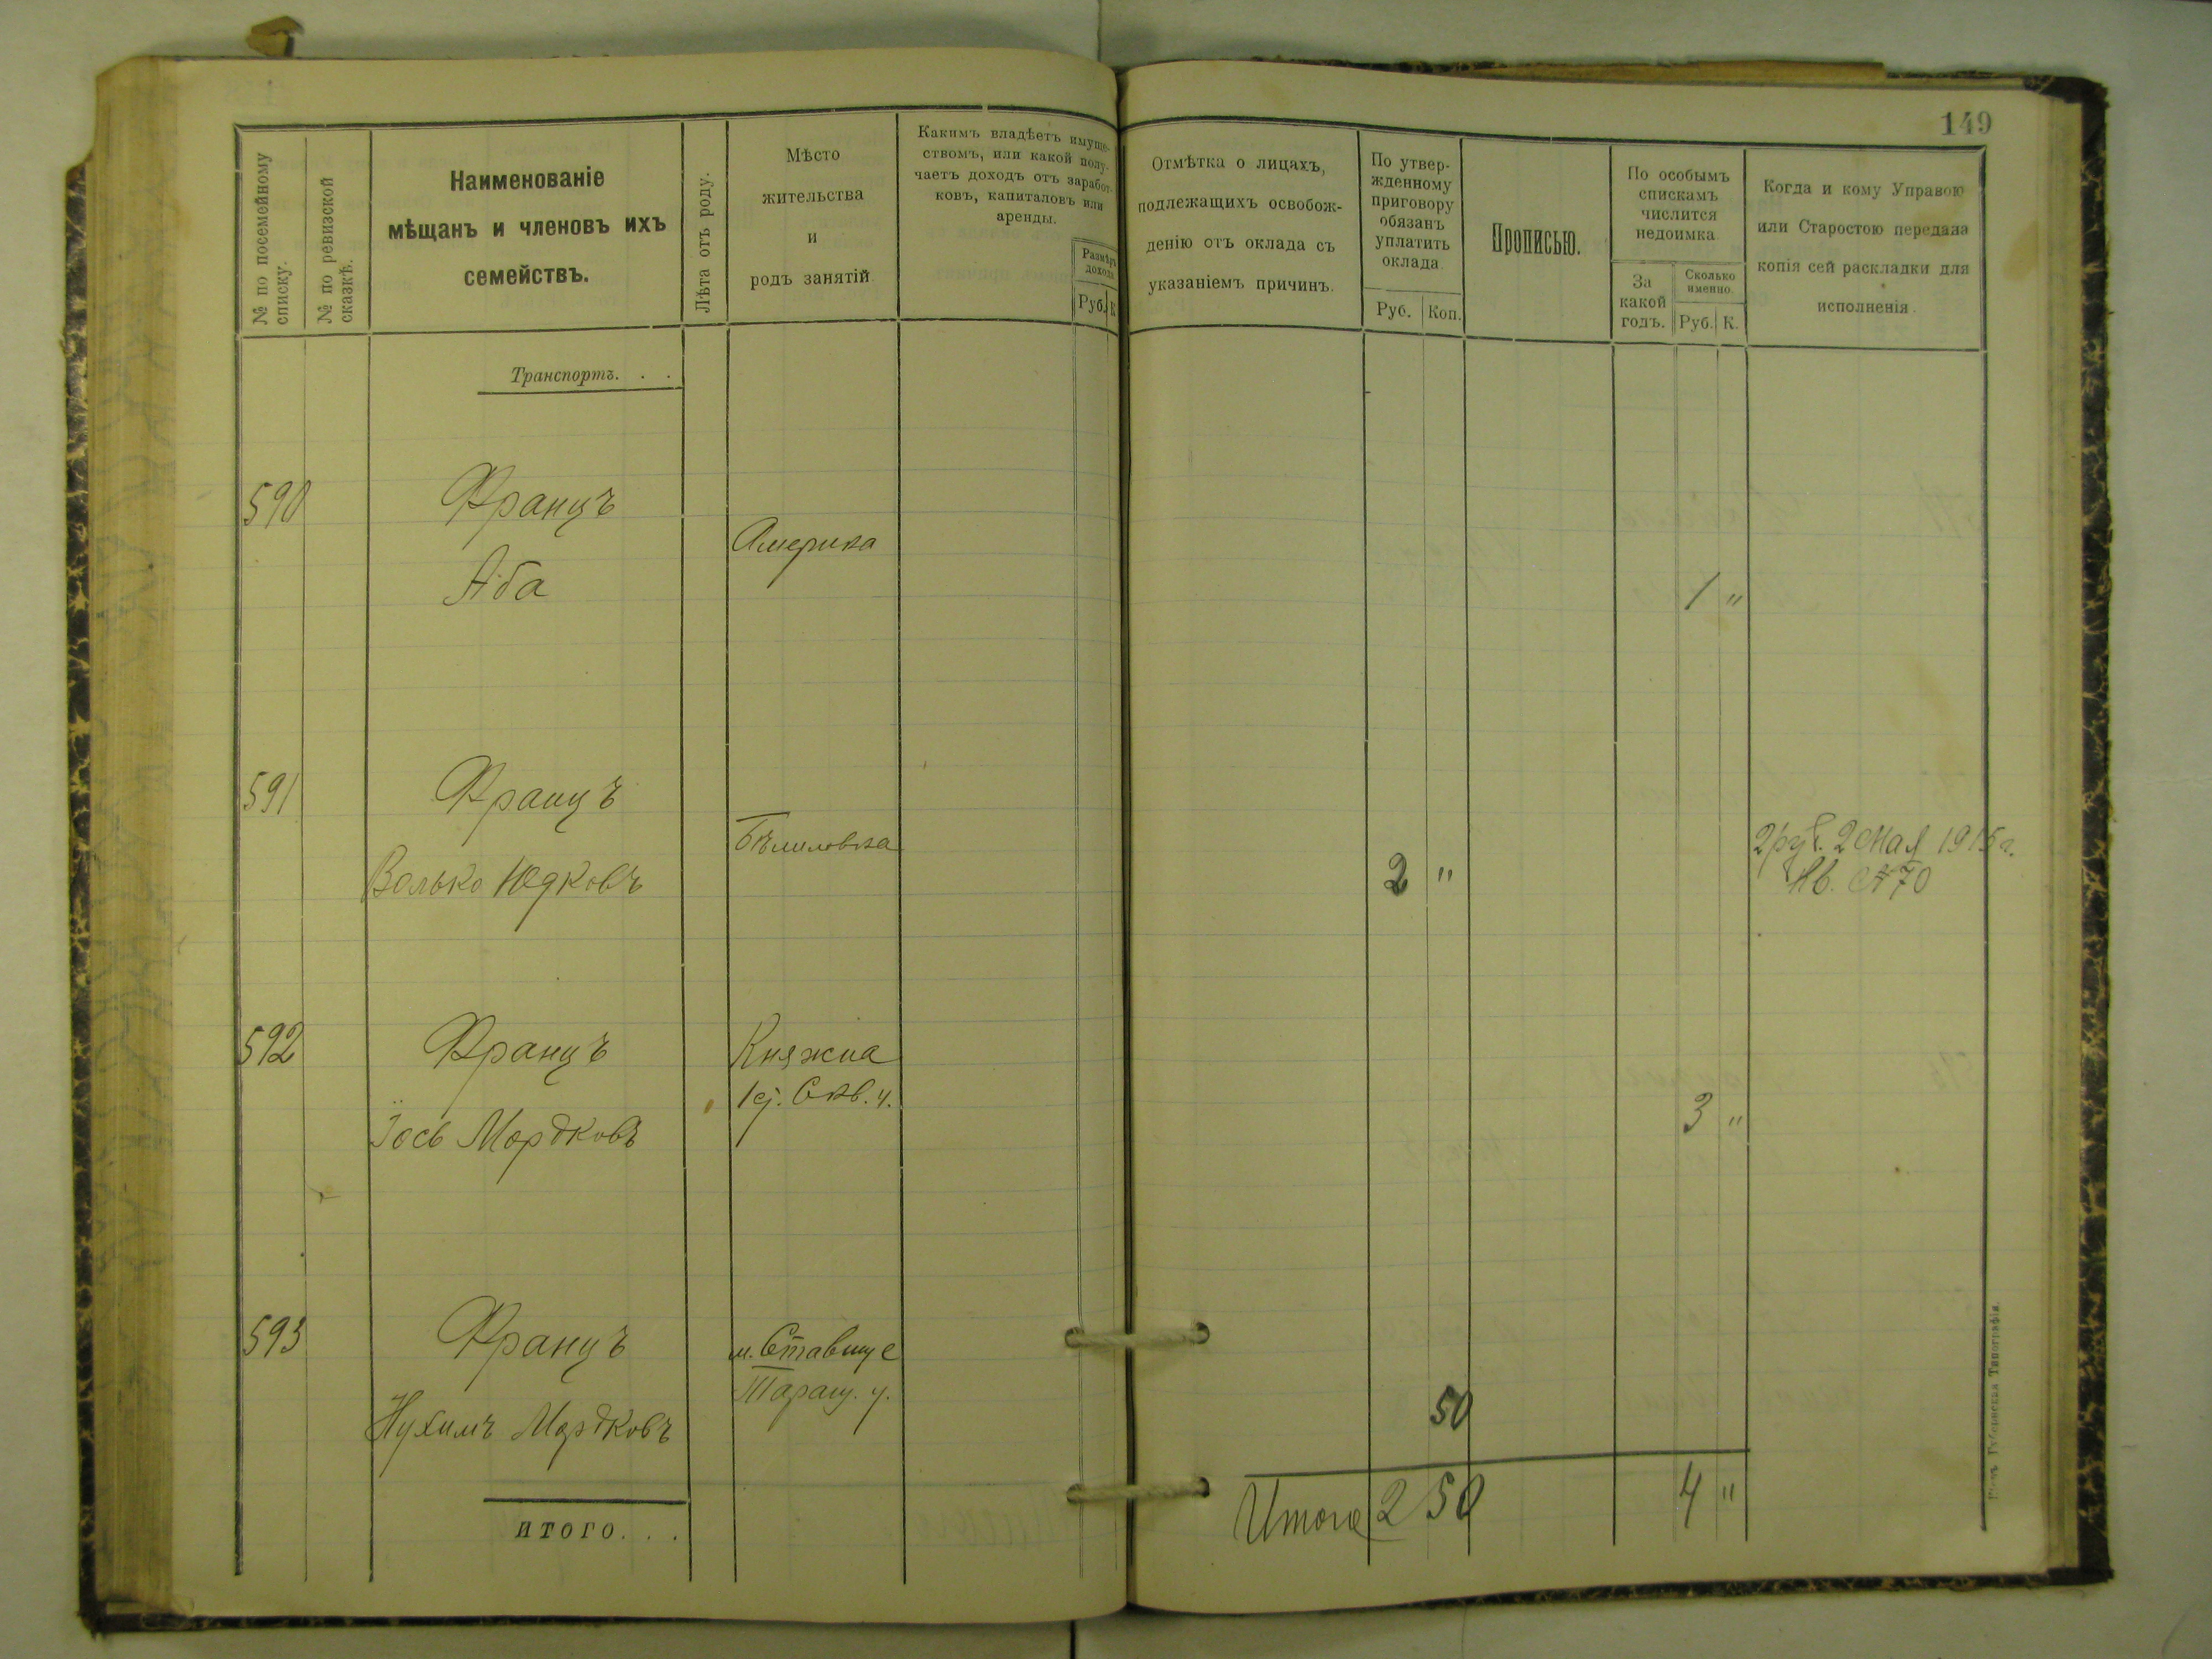 149
№ по посемейному
списку.
№ по ревизской
сказкѣ.
Наименованіе
мѣщанъ и членовъ ихъ
семействъ.
Лѣта отъ роду.
Мѣсто
жительства
и
родъ занятій
Какимъ владѣетъ имуще-
ствомъ, или какой полу-
чаетъ доходъ отъ заработ-
ковъ, капиталовъ или
аренды.
Размѣръ
дохода.
Руб. К
Отмѣтка о лицахъ,
подлежащихъ освобож-
денію отъ оклада съ
указаніемъ причинъ.
По утвер-
жденному
приговору
обязанъ
уплатить
оклада.
Руб. Коп.
Прописью.
По особымъ
спискамъ
числится
недоимка
За
какой
годъ.
Сколько
именно.
Руб. К.
Когда и кому Управою
или Старостою передана
копія сей раскладки для
исполненія.
Транспортъ. . .
590 Францъ
Америка
Аба 1 "
591 Францъ
Бѣлиловка
Волько Юдковъ 2 "
2 руб. 2 мая 1915 г.
Кв. № 70
592 Францъ Княжна
Ісь Мордковъ 3 "
593 Францъ м. Ставище
Таращ. у.
Нухимъ Мордковъ 50
ИТОГО. . .
Итого 2 50 4 "
Губернская Типографія.